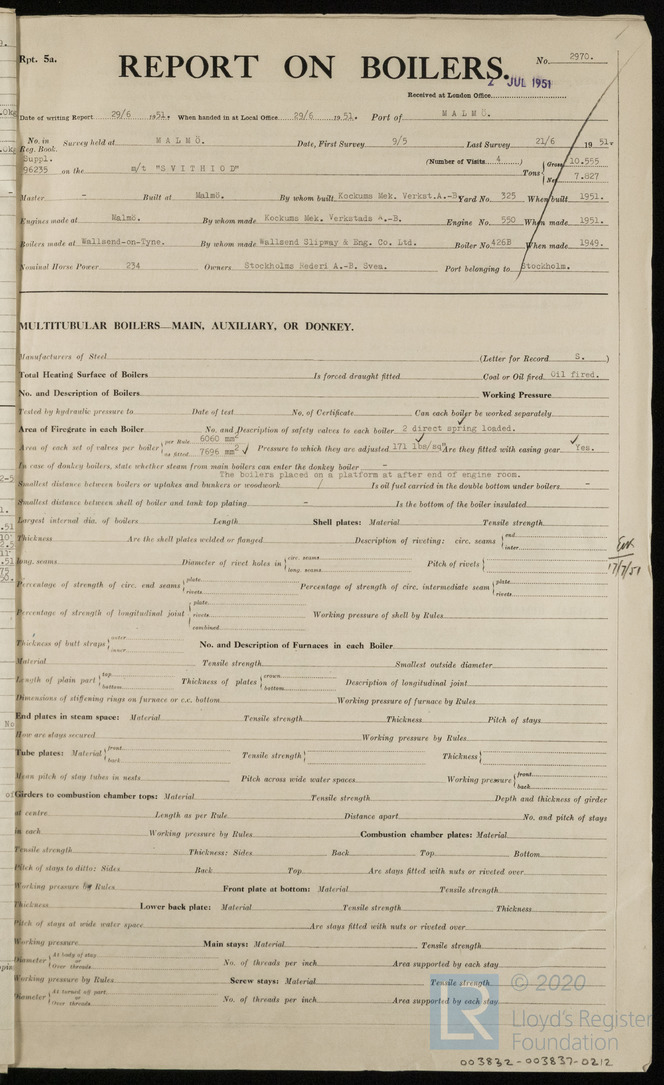 Rpt. 5a.
No. 2970.
REPORT ON BOILERS.
2 JUL 1951
Received at London Office
Date of writing Report 29/6 1951. When handed in at Local Office 29/6 1951. Port of MALMÖ.
No. in Reg. Book. Survey held at MALMÖ. Date, First Survey 9/5 Last Survey 21/6 1951.
Suppl. (Number of Visits 4 ) Gross 10.555
96235 on the m/t "SVITHIOD" Tons Net 7.827
Master - Built at Malmö. By whom built Kockums Mek. Verkst.A.-B. Yard No. 325 When built 1951.
Engines made at Malmö. By whom made Kockums Mek. Verkstads A.-B. Engine No. 550 When made 1951.
Boilers made at Wallsend-on-Tyne. By whom made Wallsend Slipway & Eng. Co. Ltd. Boiler No. 426B When made 1949.
Nominal Horse Power 234 Owners Stockholms Rederi A.-B. Svea. Port belonging to Stockholm.
MULTITUBULAR BOILERS—MAIN, AUXILIARY, OR DONKEY.
Manufacturers of Steel (Letter for Record S. )
Total Heating Surface of Boilers Is forced draught fitted Coal or Oil fired Oil fired.
No. and Description of Boilers Working Pressure
Tested by hydraulic pressure to Date of test No. of Certificate Can each boiler be worked separately
Area of Firegrate in each Boiler No. and Description of safety valves to each boiler 2 direct spring loaded.
Area of each set of valves per boiler per Rule 6060 mm² as fitted 7696 mm² ✓ Pressure to which they are adjusted 171 lbs/sq" Are they fitted with easing gear Yes.
In case of donkey boilers, state whether steam from main boilers can enter the donkey boiler -
The boilers placed on a platform at after end of engine room.
Smallest distance between boilers or uptakes and bunkers or woodwork / Is oil fuel carried in the double bottom under boilers -
Smallest distance between shell of boiler and tank top plating - Is the bottom of the boiler insulated
Largest internal dia. of boilers Length Shell plates: Material Tensile strength
Thickness Are the shell plates welded or flanged Description of riveting: circ. seams end inter.
long. seams Diameter of rivet holes in circ. seams long. seams Pitch of rivets
17/7/51
Percentage of strength of circ. end seams plate rivets Percentage of strength of circ. intermediate seam plate rivets
Percentage of strength of longitudinal joint plate rivets combined Working pressure of shell by Rules
Thickness of butt straps outer inner No. and Description of Furnaces in each Boiler
Material Tensile strength Smallest outside diameter
Length of plain part top bottom Thickness of plates crown bottom Description of longitudinal joint
Dimensions of stiffening rings on furnace or c.c. bottom Working pressure of furnace by Rules
End plates in steam space: Material Tensile strength Thickness Pitch of stays
How are stays secured Working pressure by Rules
Tube plates: Material front back Tensile strength Thickness
Mean pitch of stay tubes in nests Pitch across wide water spaces Working pressure front back
Girders to combustion chamber tops: Material Tensile strength Depth and thickness of girder
at centre Length as per Rule Distance apart No. and pitch of stays
in each Working pressure by Rules Combustion chamber plates: Material
Tensile strength Thickness: Sides Back Top Bottom
Pitch of stays to ditto: Sides Back Top Are stays fitted with nuts or riveted over
Working pressure by Rules Front plate at bottom: Material Tensile strength
Thickness Lower back plate: Material Tensile strength Thickness
Pitch of stays at wide water space Are stays fitted with nuts or riveted over
Working pressure Main stays: Material Tensile strength
Diameter At body of stay or Over threads No. of threads per inch Area supported by each stay
Working pressure by Rules Screw stays: Material Tensile strength
Diameter At turned off part or Over threads No. of threads per inch Area supported by each stay
LR © 2020
Lloyd's Register
Foundation
003832-003837-0212